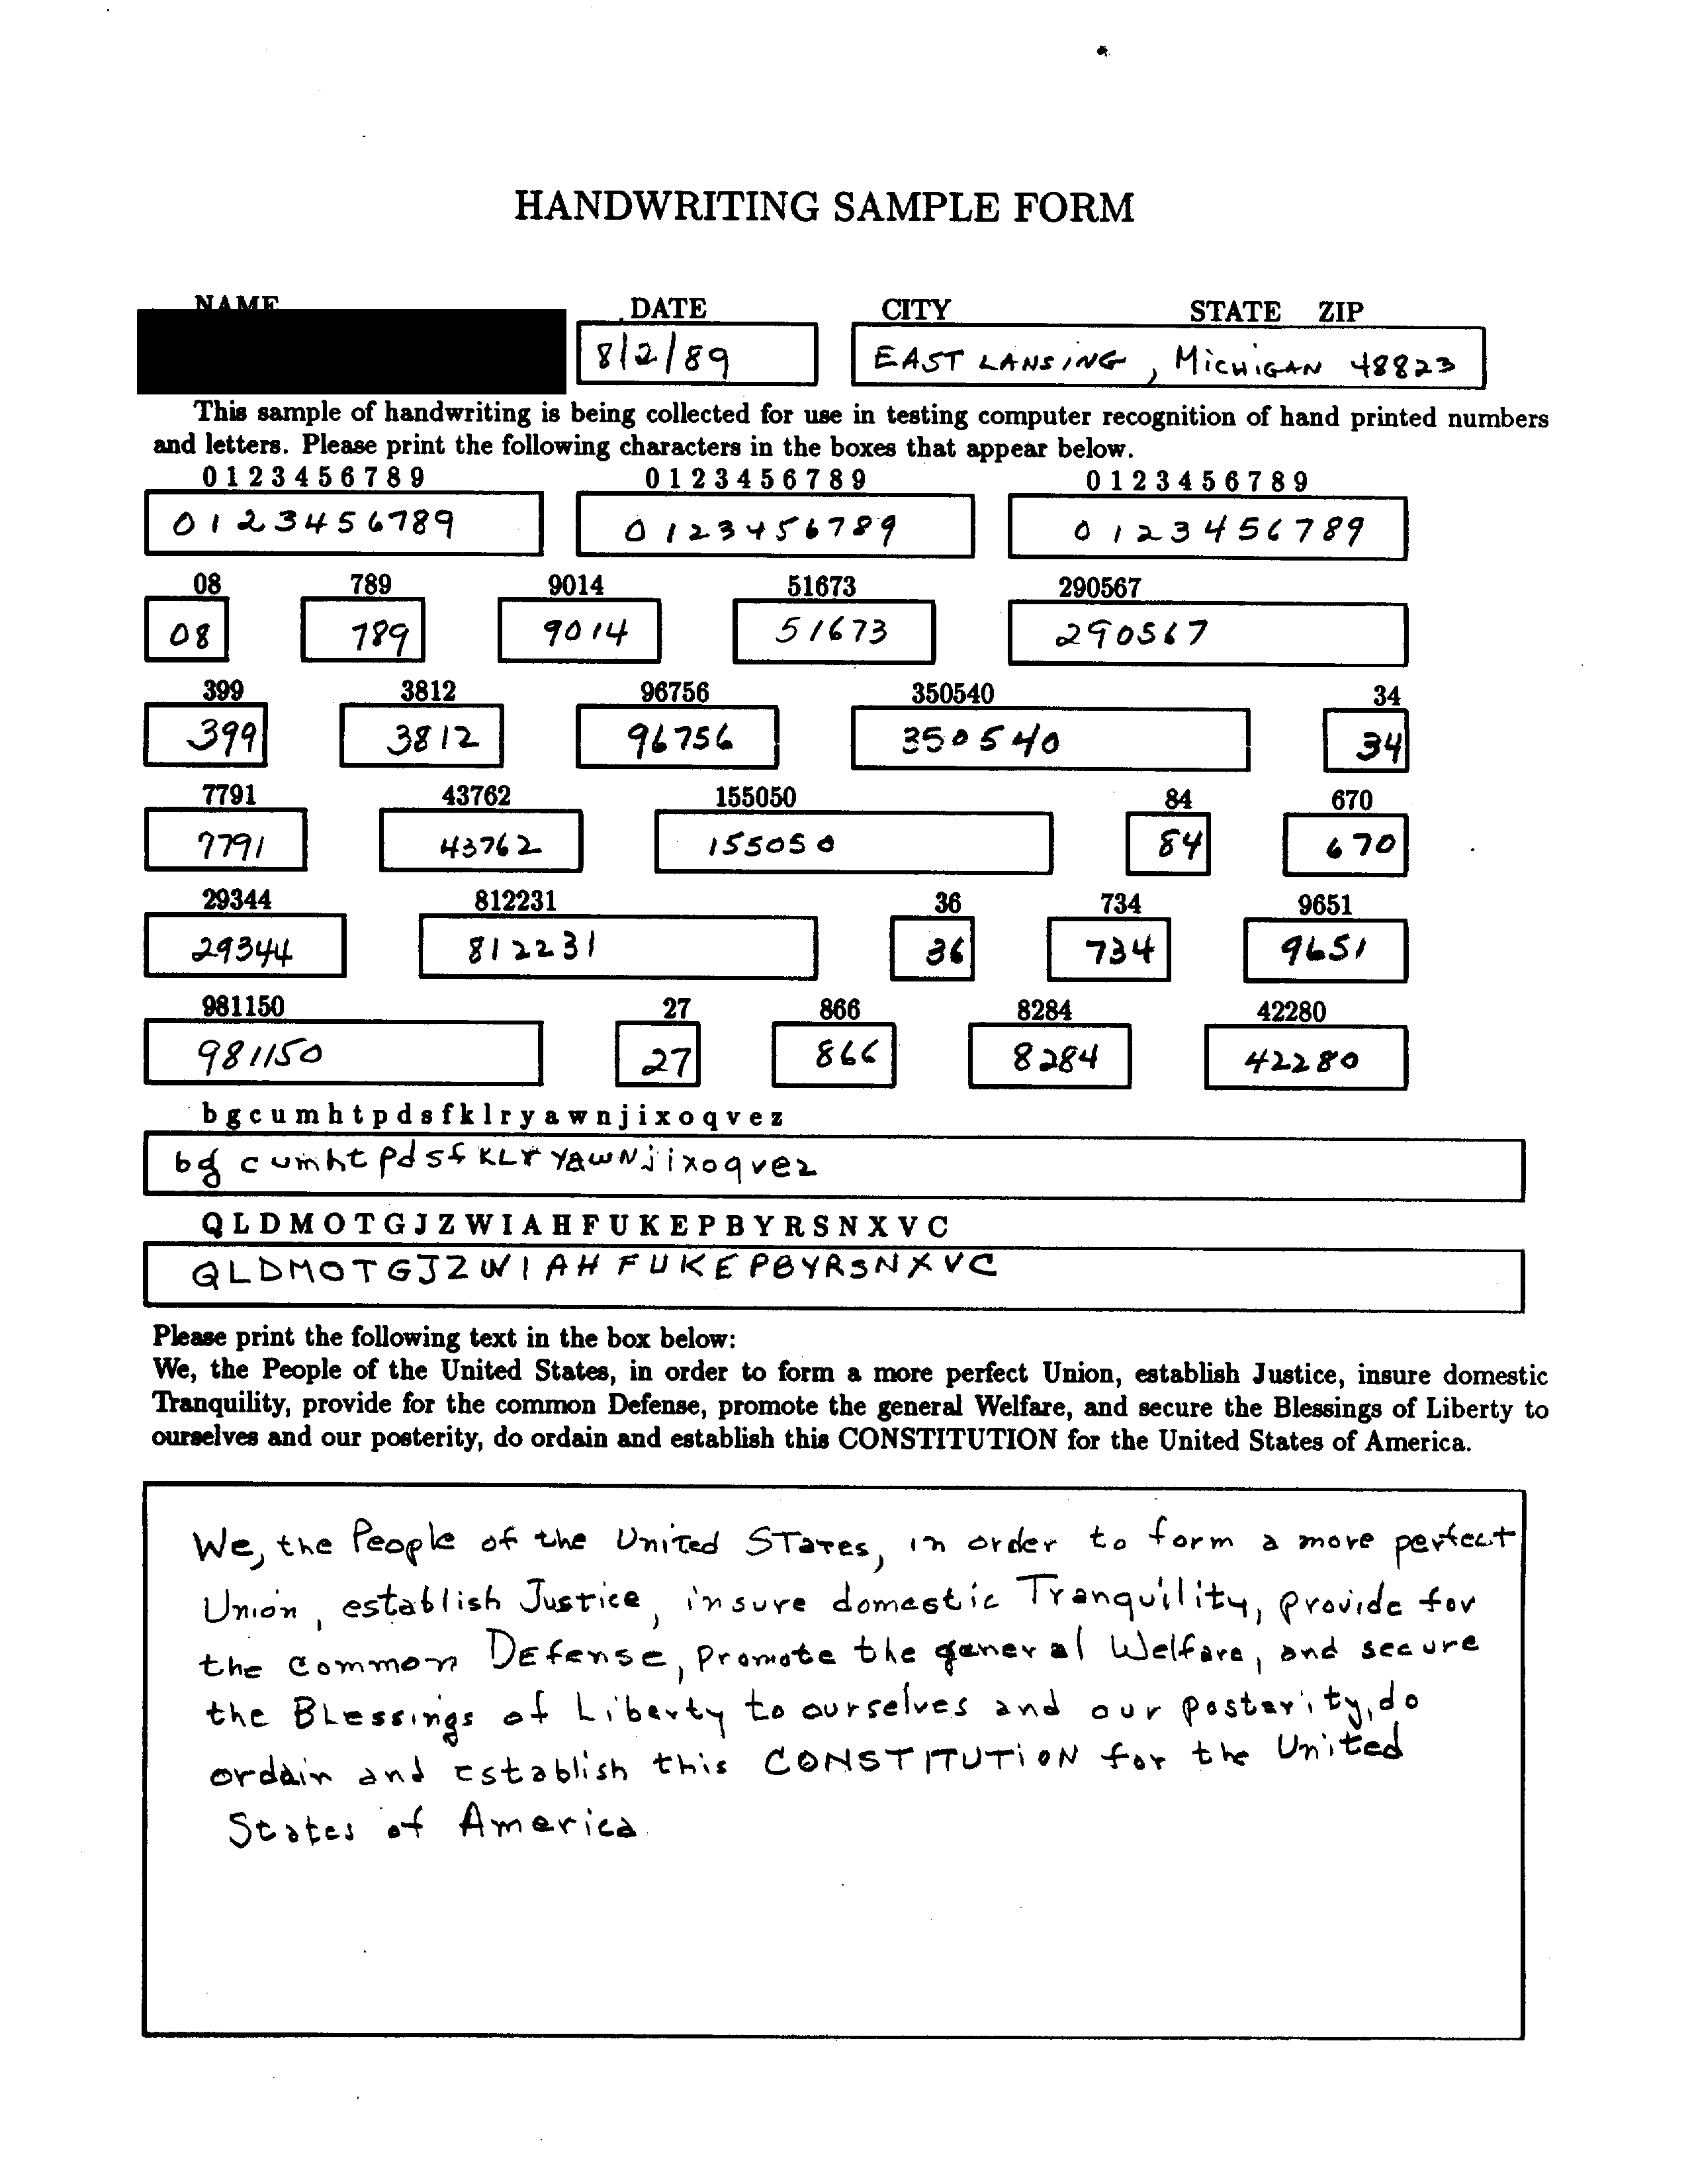 HANDWRITING SAMPLE FORM
NAME DATE CITY STATE ZIP
8/2/89 EAST LANSING, MICHIGAN 48823
This sample of handwriting is being collected for use in testing computer recognition of hand printed numbers
and letters. Please print the following characters in the boxes that appear below.
0 1 2 3 4 5 6 7 8 9 0 1 2 3 4 5 6 7 8 9 0 1 2 3 4 5 6 7 8 9
0 1 2 3 4 5 6 7 8 9 0 1 2 3 4 5 6 7 8 9 0 1 2 3 4 5 6 7 8 9
08 789 9014 51673 290567
08 789 9014 51673 290567
399 3812 96756 350540 34
399 3812 96756 350540 34
7791 43762 155050 84 670
7791 43762 155050 84 670
29344 812231 36 734 9651
29344 812231 36 734 9651
981150 27 866 8284 42280
981150 27 866 8284 42280
b g c u m h t p d s f k l r y a w n j i x o q v e z
b g c u m h t p d s f K L r Y A W N j i x o q v e z
Q L D M O T G J Z W I A H F U K E P B Y R S N X V C
Q L D M O T G J Z W I A H F U K E P B Y R S N X V C
Please print the following text in the box below:
We, the People of the United States, in order to form a more perfect Union, establish Justice, insure domestic
Tranquility, provide for the common Defense, promote the general Welfare, and secure the Blessings of Liberty to
ourselves and our posterity, do ordain and establish this CONSTITUTION for the United States of America.
We, the People of the United STates, in order to form a more perfect
Union, establish Justice, insure domestic Tranquility, provide for
the common DEfense, promote the general Welfare, and secure
the BLessings of Liberty to ourselves and our posterity, do
ordain and establish this CONSTITUTiON for the United
States of America